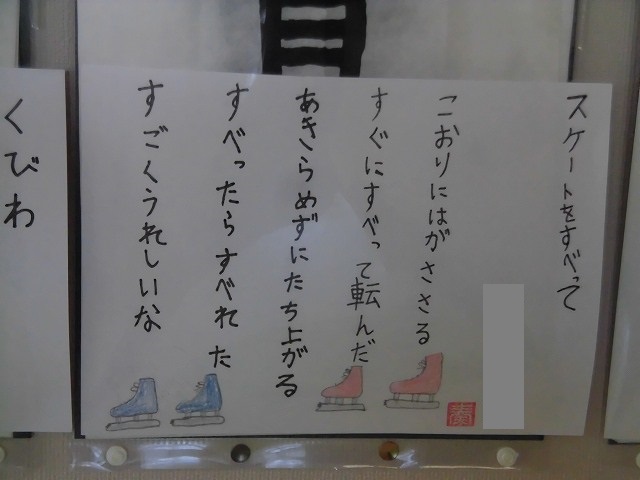 スケートをすべって
こおりにはがささる
すぐにすべって転んだ
あきらめずにたち上がる
すべったらすべれた
すごくうれしいな
くびわ